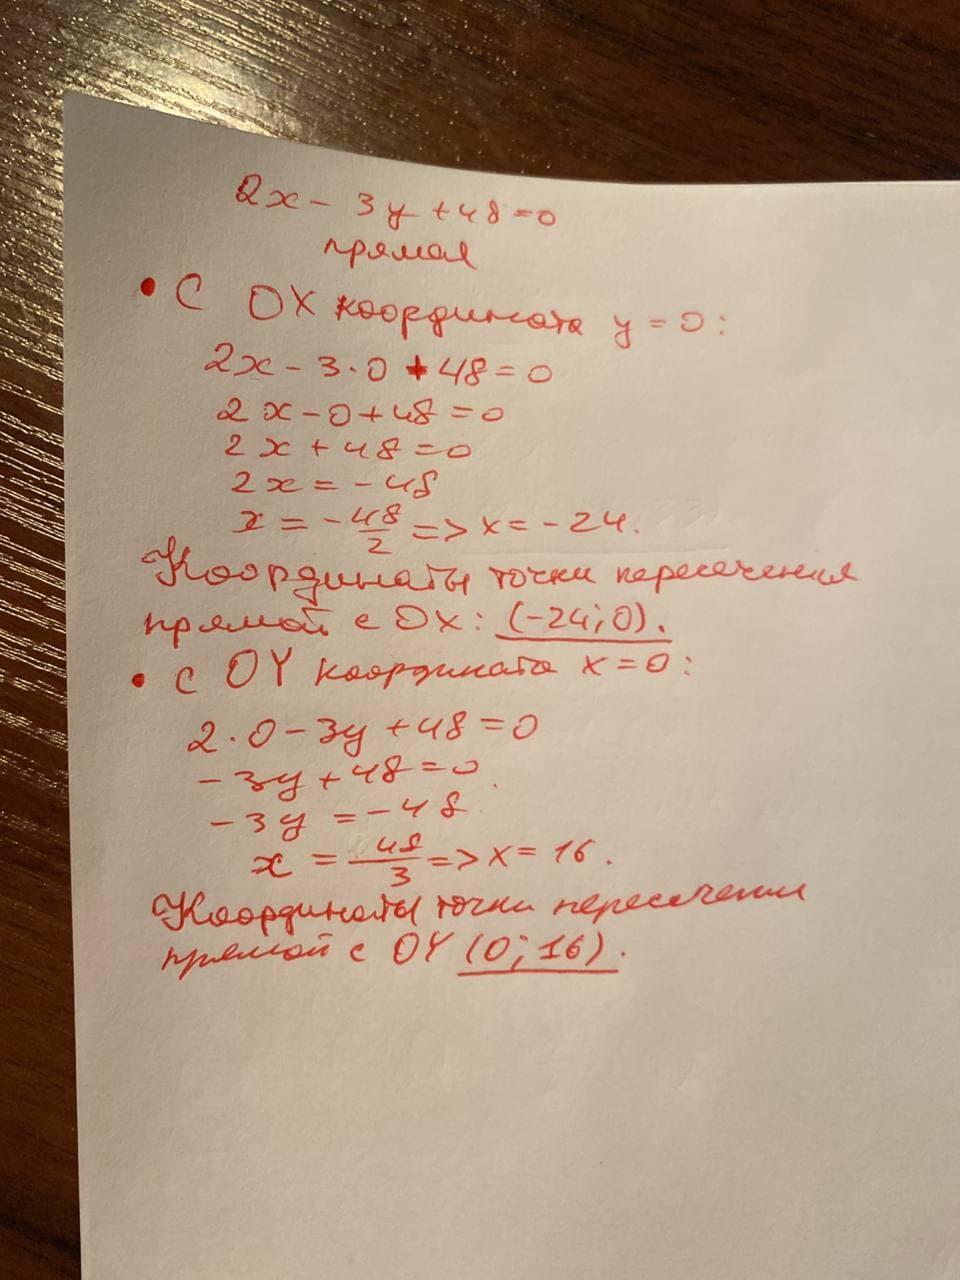 2x - 3y + 48 = 0
прямая
• С OX координата y = 0:
2x - 3·0 + 48 = 0
2x - 0 + 48 = 0
2x + 48 = 0
2x = -48
x = -48/2 => x = -24.
Координаты точки пересечения
прямой с OX: (-24; 0).
• С OY координата x = 0:
2·0 - 3y + 48 = 0
-3y + 48 = 0
-3y = -48
x = 48/3 => x = 16.
Координаты точки пересечении
прямой с OY (0; 16).